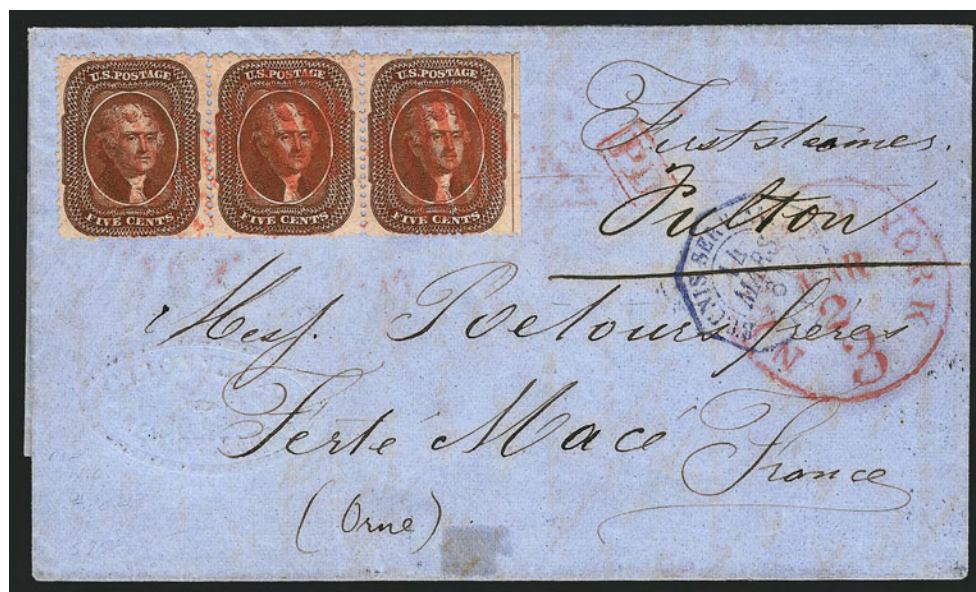 U.S.POSTAGE
FIVE CENTS
U.S.POSTAGE
FIVE CENTS
U.S.POSTAGE
FIVE CENTS
First steamer.
Fulton
YORK
MAR
14
MARS
Mess. Poetours frères
Ferté Macé
France
(Orne)